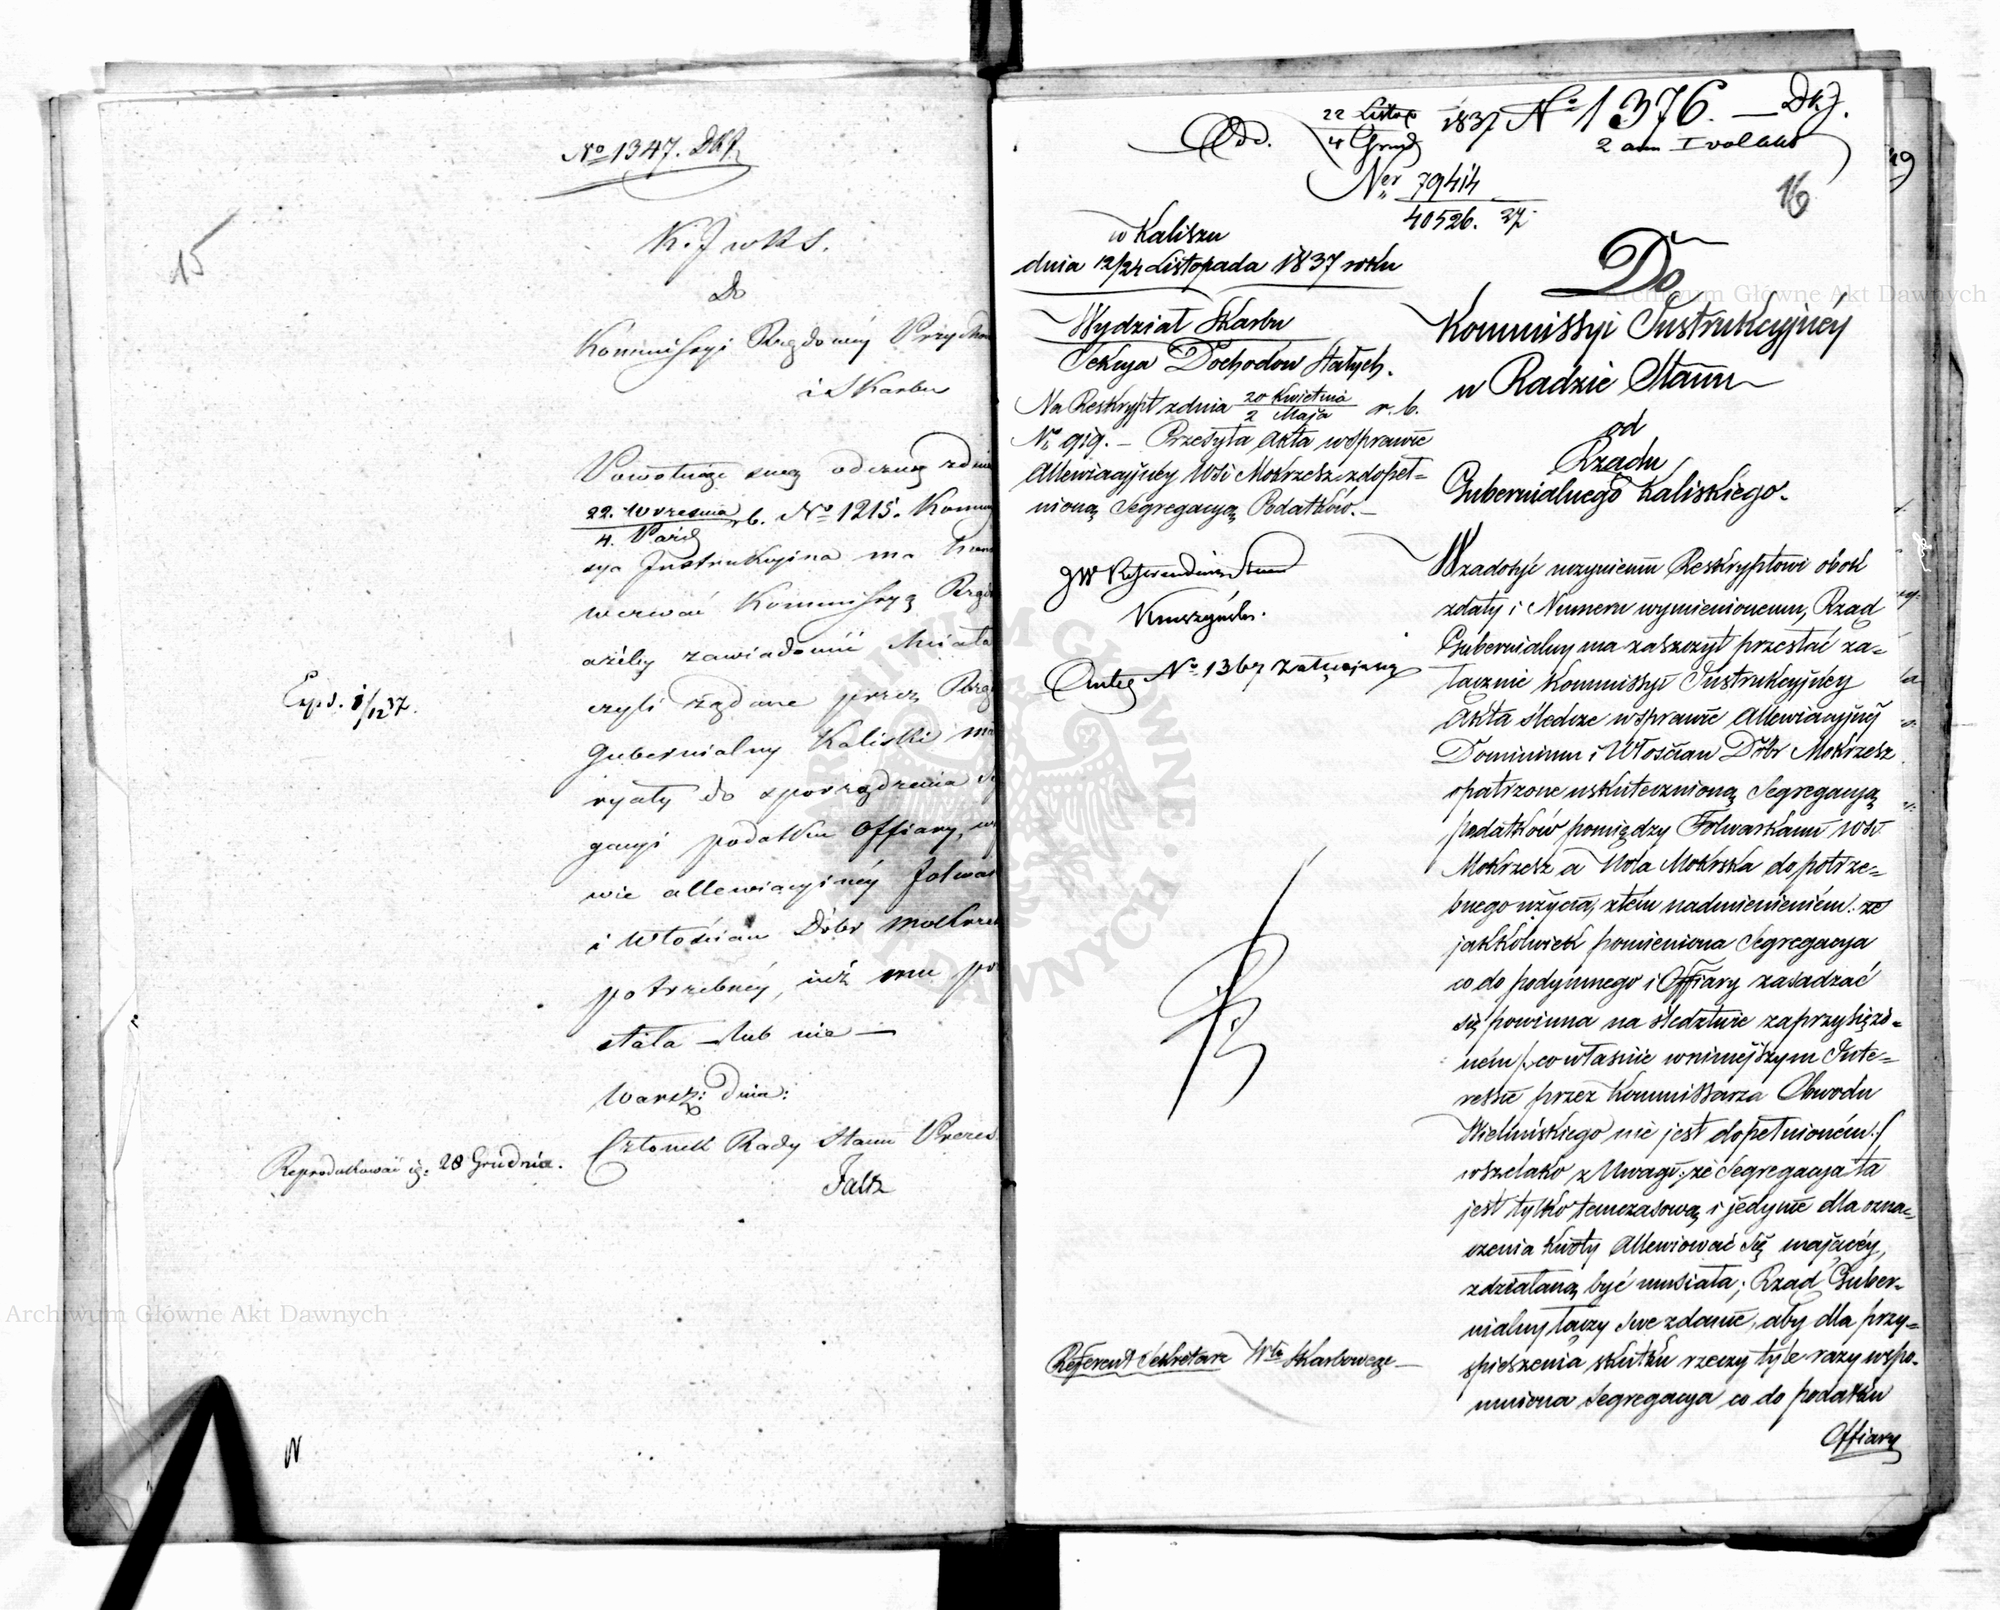 No 1347. DKJ.
15
K. J. w R. S.
Do
Kommissyi Rządowéy Przycho
i Skarbu
Powołując swą odezwę z dnia
22. Września
4. Paźd r. b. No 1215. Kommi
sya Instrukcyina ma honor
wezwać Kommissyą Rzą
ażeby zawiadomić chciała
czyli żądane przez Rząd
Gubernialny Kaliski ma
Exp. d. 1/12 37.
ryały do sporządzenia Se
gacyi podatku Offiary, w
wie allewiacyinéy folwar
i Włościan Dóbr Mokrzesz
potrzebnéy, już mu po
słała – lub nie –
Warsz: Dnia:
Członek Rady Stanu Prezes.
Faltz
Reprodukować ię: 28 Grudnia.
N
Odd. 22 Listop
4 Grud 1837 No 1376. – DKJ.
2 ann I vol akt
Ner 79414
40526. 37.
16
19
w Kaliszu
dnia 12/24 Listopada 1837 roku
Wydział Skarbu
Sekcya Dochodow Stałych.
Na Reskrypt z dnia 20 Kwietnia
2 Maja r. b.
No 919. – Przesyła Akta w sprawie
Allewiacyjnéy Wsi Mokrzesz z dopeł=
nioną Segregacyą Podatków. –
JW Referendarz Stanu
No 1367
Do
Kommissyi Instrukcyjnéy
w Radzie Stanu
od
Rządu
Gubernialnego Kaliskiego.
W zadosyć uczynieniu Reskryptowi obok
z daty i Numeru wymienionemu, Rząd
Gubernialny ma zaszczyt przesłać za=
łącznie Kommissyi Instrukcyjnéy
Akta śledcze w sprawie Allewiacyjnéj
Dominium i Włościan Dóbr Mokrzesz
opatrzone uskutecznioną Segregacyą
podatków pomiędzy Folwarkami Wsi
Mokrzesz a Wola Mokrska do potrze=
bnego użycia, z tém nadmienieniém: że
jakkolwiek pomieniona Segregacya
co do podymnego i Offiary zasadzać
się powinna na śledztwie zaprzysiężo=
ném /: co właśnie w niniejszym Inte=
ressie przez Kommissarza Obwodu
Wieluńskiego nie jest dopełnioném :/
wszelako z Uwagi: że Segregacya ta
jest tylko tymczasową i jedynie dla ozna=
czenia kwoty Allewiować się mającéy,
zdziałaną być musiała; Rząd Guber=
nialny łączy swe zdanie, aby dla przy=
spieszenia skutku rzeczy tyle razy wspo=
mniona Segregacya co do podatku
Offiary
Referent Sekretarz Włu Skarbowego –
Archiwum Główne Akt Dawnych
Archiwum Główne Akt Dawnych
ARCHIWUM GŁÓWNE AKT DAWNYCH